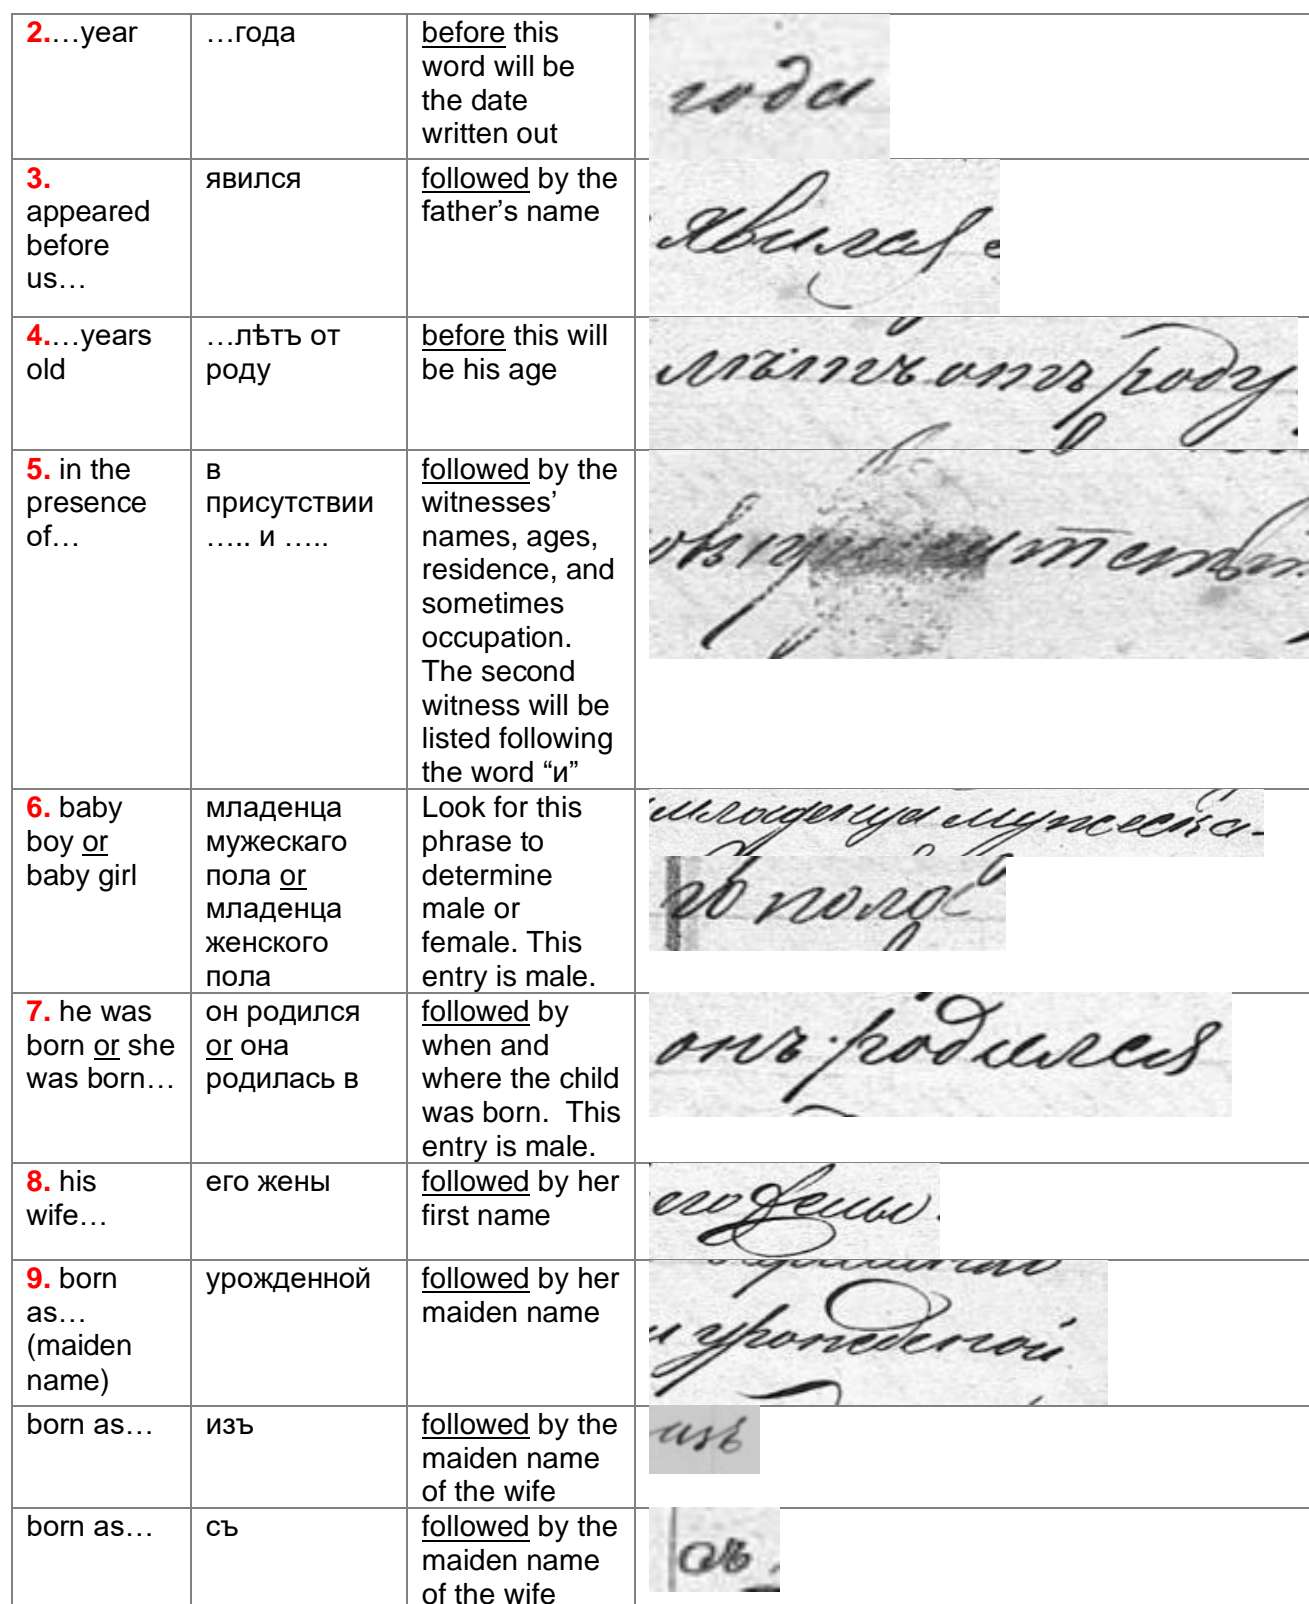 2.…year
…года
before this
word will be
the date
written out
года
3.
appeared
before
us…
явился
followed by the
father’s name
явился
4.…years
old
…лѣтъ от
роду
before this will
be his age
лѣтъ отъ роду
5. in the
presence
of…
в
присутствии
….. и …..
followed by the
witnesses’
names, ages,
residence, and
sometimes
occupation.
The second
witness will be
listed following
the word “и”
6. baby
boy or
baby girl
младенца
мужескаго
пола or
младенца
женского
пола
Look for this
phrase to
determine
male or
female. This
entry is male.
младенца мужеска-
го пола
7. he was
born or she
was born…
он родился
or она
родилась в
followed by
when and
where the child
was born. This
entry is male.
онъ родился
8. his
wife…
его жены
followed by her
first name
его жены
9. born
as…
(maiden
name)
урожденной
followed by her
maiden name
урожденой
born as…
изъ
followed by the
maiden name
of the wife
изъ
born as…
съ
followed by the
maiden name
of the wife
съ